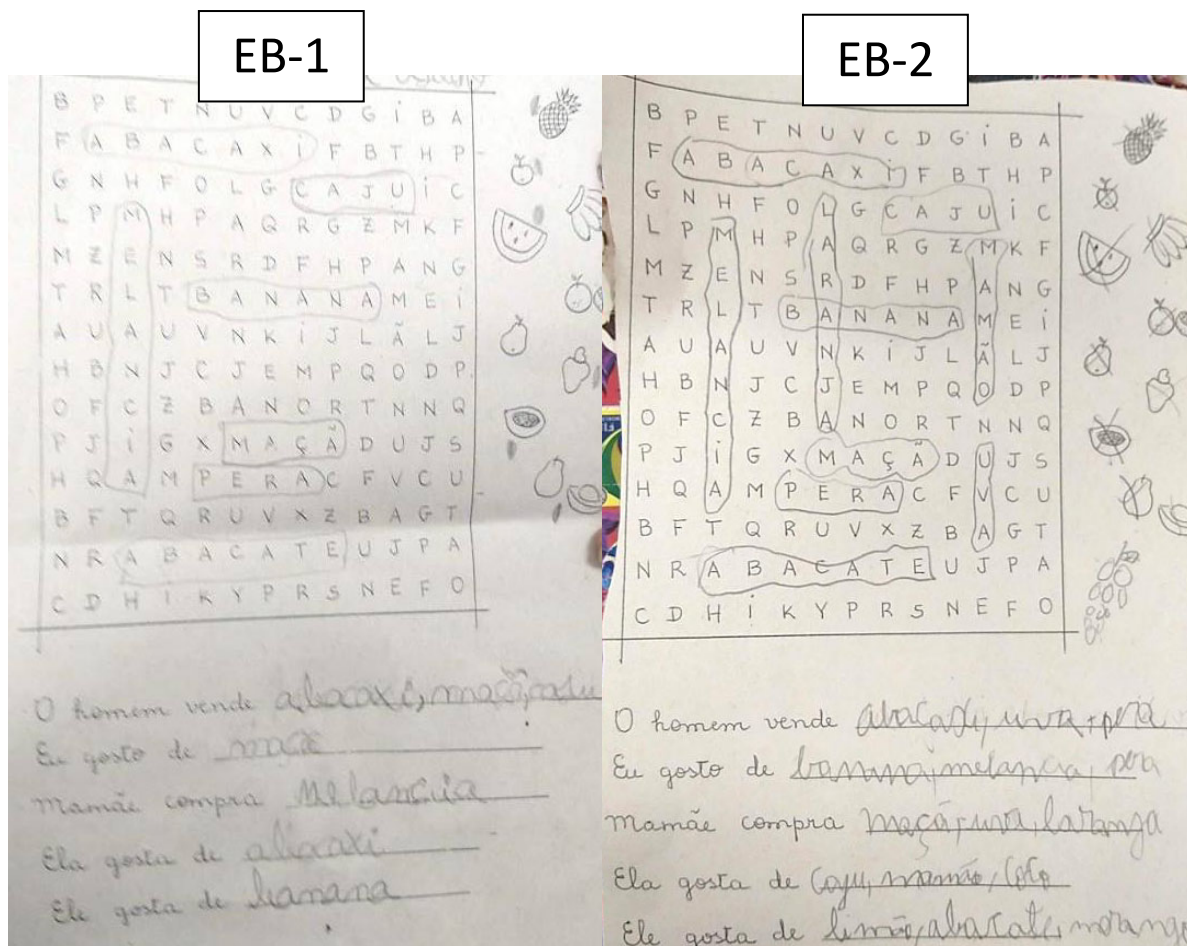 EB-1
B P E T N U V C D G I B A
F A B A C A X I F B T H P
G N H F O L G C A J U I C
L P M H P A Q R G Z M K F
M Z E N S R D F H P A N G
T R L T B A N A N A M E I
A U A U V N K I J L Ã L J
H B N J C J E M P Q O D P
O F C Z B A N O R T N N Q
P J I G X M A Ç Ã D U J S
H Q A M P E R A C F V C U
B F T Q R U V X Z B A G T
N R A B A C A T E U J P A
C D H I K Y P R S N E F O
O homem vende abacaxi, maçã, caju
Eu gosto de
Mamãe compra Melancia
Ela gosta de abacaxi
Ele gosta de banana
EB-2
B P E T N U V C D G I B A
F A B A C A X I F B T H P
G N H F O L G C A J U I C
L P M H P A Q R G Z M K F
M Z E N S R D F H P A N G
T R L T B A N A N A M E I
A U A U V N K I J L Ã L J
H B N J C J E M P Q O D P
O F C Z B A N O R T N N Q
P J I G X M A Ç Ã D U J S
H Q A M P E R A C F V C U
B F T Q R U V X Z B A G T
N R A B A C A T E U J P A
C D H I K Y P R S N E F O
O homem vende abacaxi, uva, pera
Eu gosto de banana, melancia, pera
Mamãe compra maçã, uva, laranga
Ela gosta de Caju, mamão, Coco
Ele gosta de limão, abacate, morango